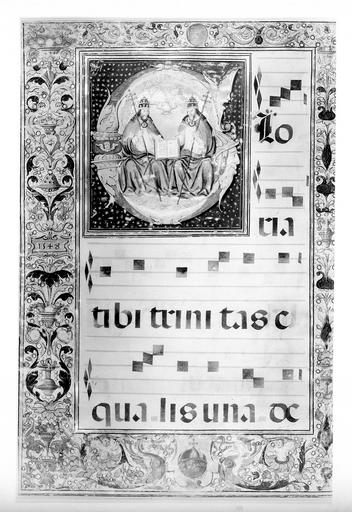 Glo
ria
1548
tibi trini tas e
qua lis una dc